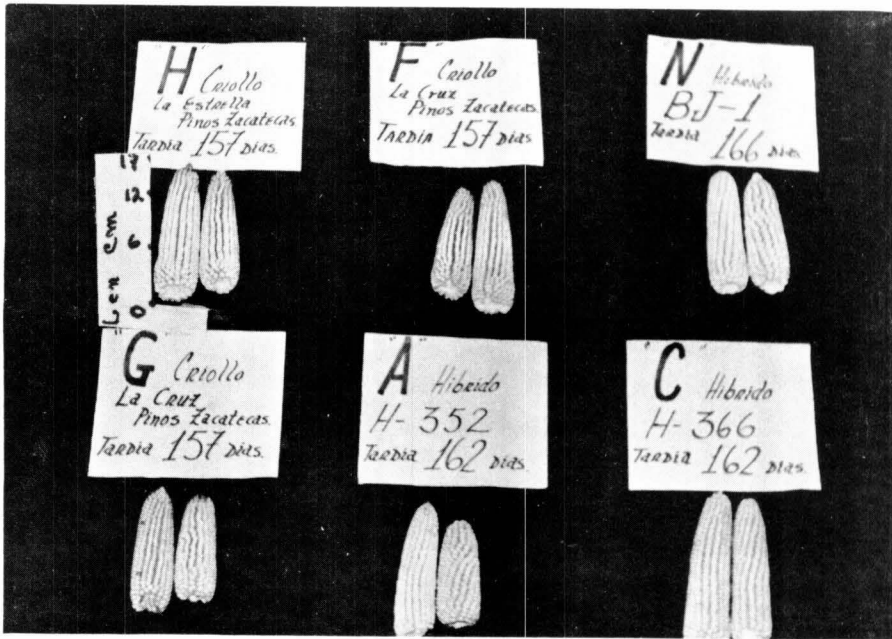 "H" Criollo
La Estrella
Pinos Zacatecas.
Tardia 157 Dias.
"F" Criollo
La Cruz
Pinos Zacatecas.
Tardia 157 Dias.
"N" Hibrido
BJ-1
Tardia 166 Dias.
17
12
6
0
L en cm
"G" Criollo
La Cruz
Pinos Zacatecas.
Tardia 157 Dias.
"A" Hibrido
H-352
Tardia 162 Dias.
"C" Hibrido
H-366
Tardia 162 Dias.